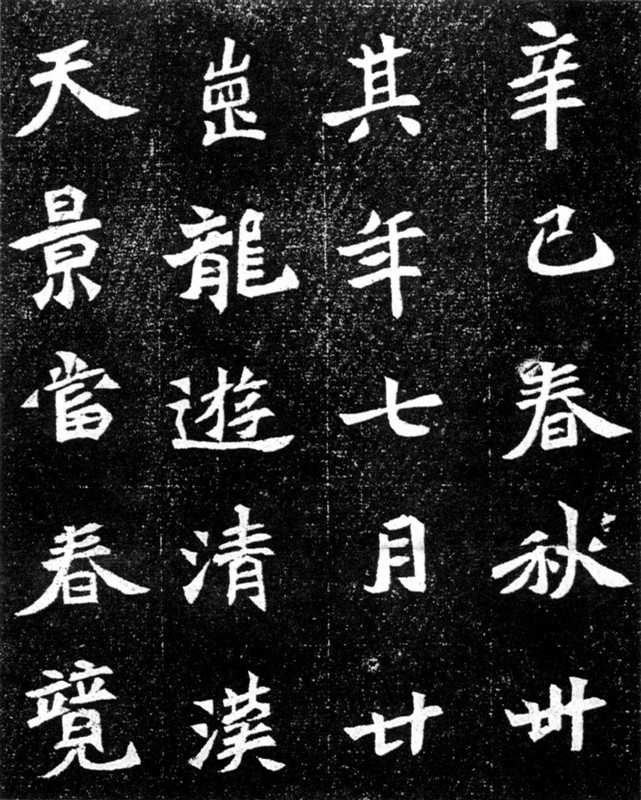 辛巳春秋卅
其年七月廿
龍遊清漢
天景當春